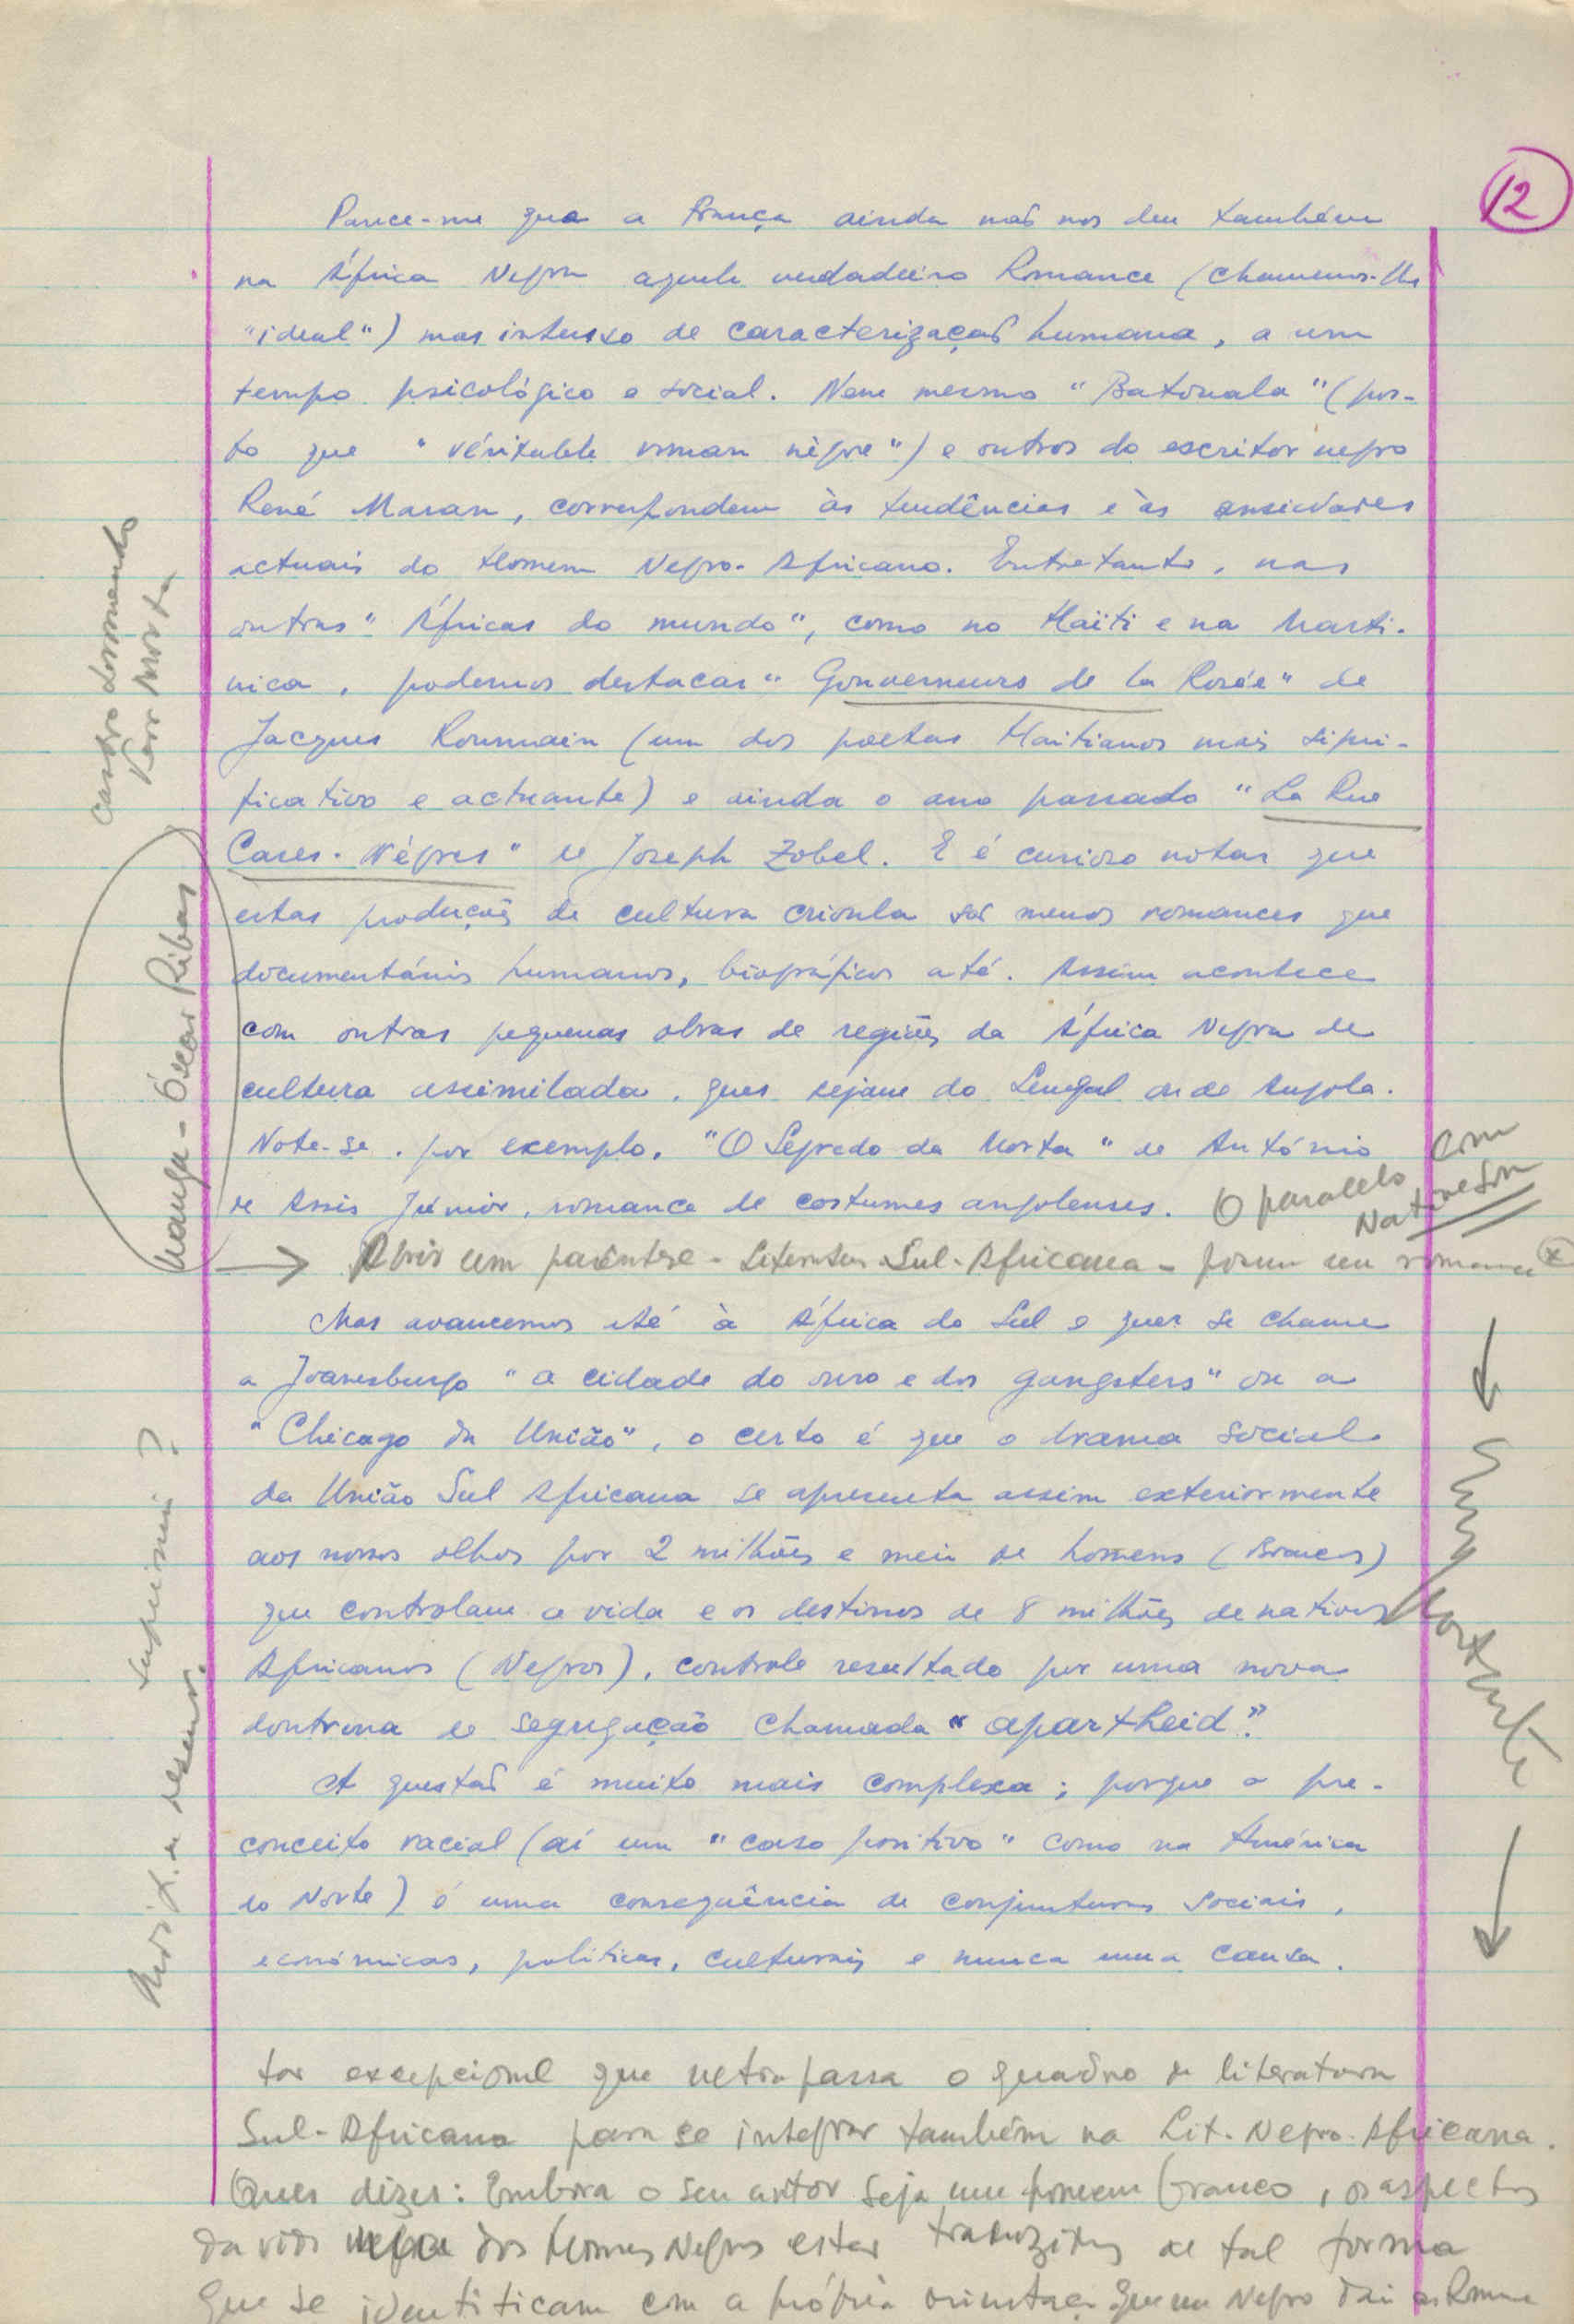 12
Parece-me que a França ainda não nos deu também
na África Negra aquele verdadeiro Romance (chamemos-lhe
"ideal") mas intenso de caracterização humana, a um
tempo psicológico e social. Nem mesmo "Batouala" (pos-
to que "véritable roman nègre") e outros do escritor negro
René Maran, correspondem às tendências e às ansiedades
actuais do Homem Negro-Africano. Entretanto, nas
outras "Áfricas do mundo", como no Haïti e na Marti-
nica, podemos destacar "Gouverneurs de la Rosée" de
Jacques Roumain (um dos poetas Haitianos mais signi-
ficativo e actuante) e ainda o ano passado "La Rue
Cases-Nègres" de Joseph Zobel. E é curioso notar que
estas produções de cultura crioula são menos romances que
documentários humanos, biográficos até. Assim acontece
com outras pequenas obras de regiões da África Negra de
cultura assimilada, quer sejam do Senegal ou de Angola.
Note-se, por exemplo, "O Segredo da Morta" de António
de Assis Júnior, romance de costumes angolenses.
O paralelo com
Native Son
→ Abrir um parêntese - Literatura Sul-Africana - porém um romance (x)
Mas avancemos até à África do Sul e quer se chame
a Joanesburgo "a cidade do ouro e dos gangsters" ou a
"Chicago da União", o certo é que o drama social
da União Sul Africana se apresenta assim exteriormente
aos nossos olhos por 2 milhões e meio de homens (Brancos)
que controlam a vida e os destinos de 8 milhões de nativos
Africanos (Negros), controle resultado por uma nova
doutrina de segregação chamada "apartheid".
A questão é muito mais complexa; porque o pre-
conceito racial (aí um "caso positivo" como na América
do Norte) é uma consequência de conjunturas sociais,
económicas, políticas, culturais e nunca uma causa.
tor excepcional que ultrapassa o quadro da literatura
Sul-Africana para se integrar também na Lit. Negro-Africana.
Quer dizer: Embora o seu autor seja um homem branco, os aspectos
da vida dos Homens Negros estão traduzidos de tal forma
que se identificam com a própria que um Negro
Castro Soromenho
Terra Morta
Uanga - Óscar Ribas
suprimir?
importante